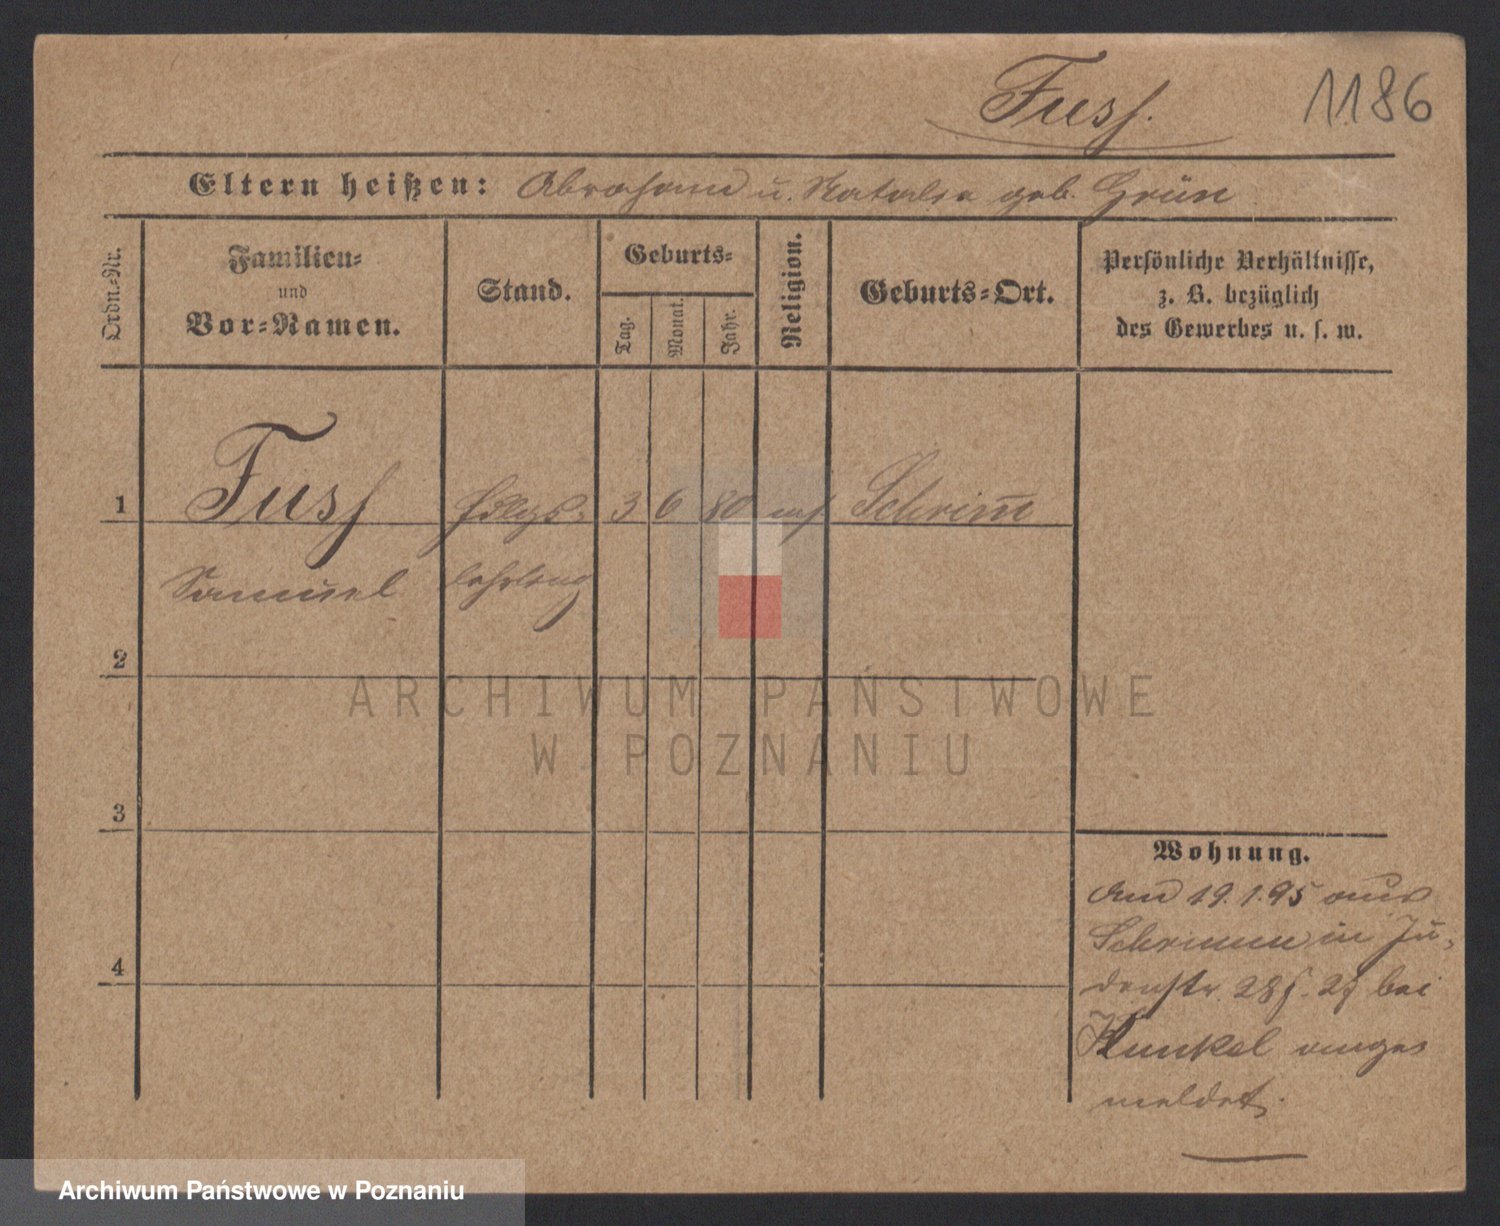 Fuss.
1186
Eltern heißen: Abraham u. Natalie geb. Grün
Ordn.-Nr.
Familien-
und
Vor-Namen.
Stand.
Geburts-
Tag.
Monat.
Jahr.
Religion.
Geburts-Ort.
Persönliche Verhältnisse,
z. B. bezüglich
des Gewerbes u. s. w.
1 Fuss Hdlgs- 3 6 80 mos Schrim̅
Samuel lehrling
2
3
4
Wohnung.
Am 19.1.95 aus
Schrimm in Ju-
denstr. 28 bei
Kunkel ange-
meldet.
ARCHIWUM PAŃSTWOWE
W POZNANIU
Archiwum Państwowe w Poznaniu